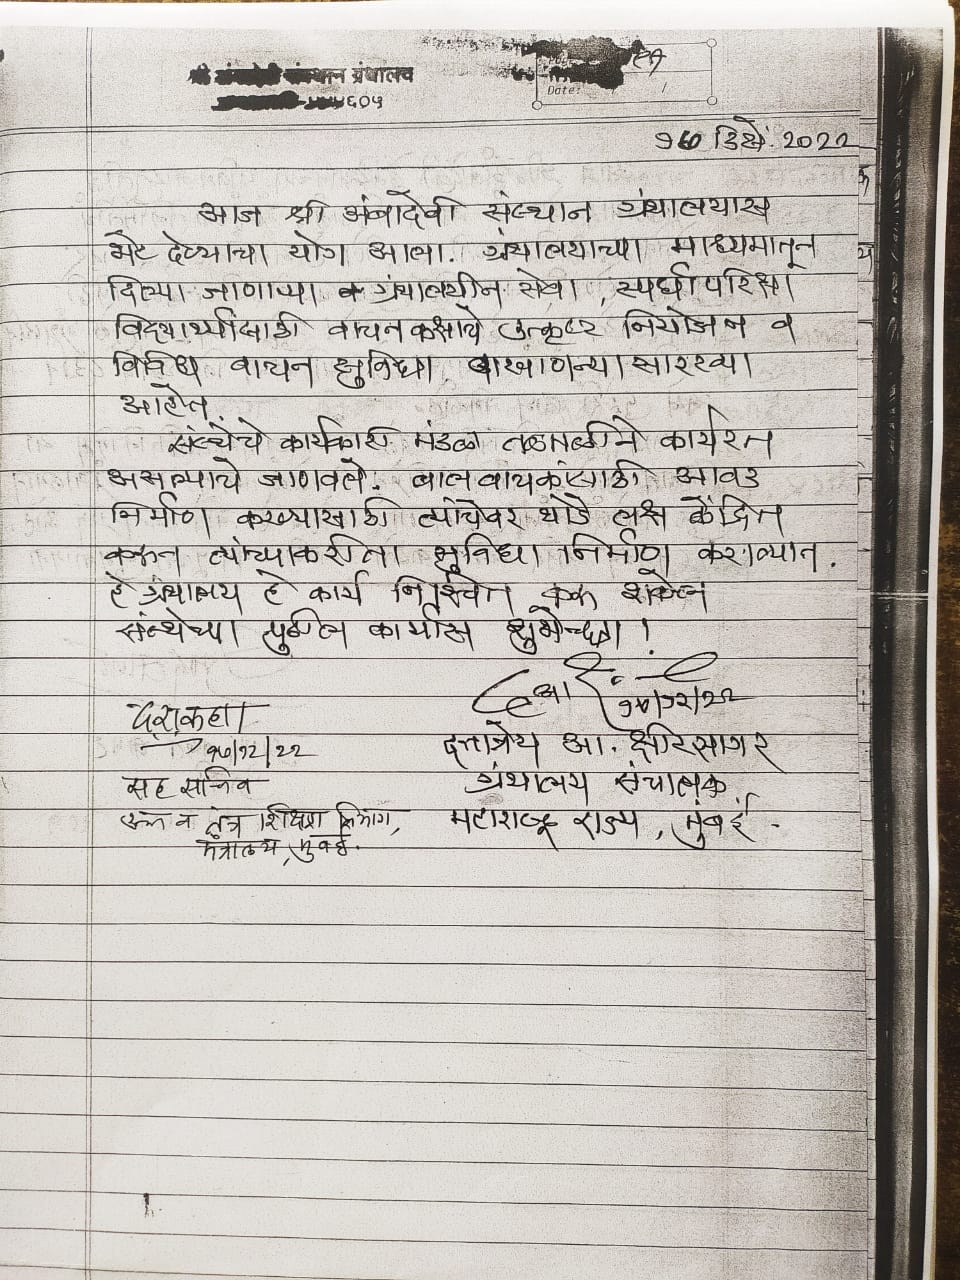 संस्थान ग्रंथालय
६०५
Date: / /
१७ डिसें. २०२२
आज श्री अंबादेवी संस्थान ग्रंथालयास
भेट देण्याचा योग आला. ग्रंथालयाच्या माध्यमातून
दिल्या जाणाऱ्या ग्रंथालयीन सेवा, स्पर्धा परिक्षा
विद्यार्थ्यांसाठी वाचन कक्षाचे उत्कृष्ट नियोजन व
विविध वाचन सुविधा वाखाणन्या सारख्या
आहेत.
संस्थेचे कार्यकारी मंडळ तळमळीने कार्यरत
असल्याचे जाणवले. बाल वाचकांसाठी आवड
निर्माण करण्यासाठी त्यांचेवर थोडे लक्ष केंद्रित
करून त्यांच्याकरीता सुविधा निर्माण कराव्यात.
हे ग्रंथालय हे कार्य निश्चित करू शकेल
संस्थेच्या पुढील कार्यास शुभेच्छा !
१७/१२/२२
दत्तात्रेय आ. क्षीरसागर
ग्रंथालय संचालक
महाराष्ट्र राज्य, मुंबई.
१७/१२/२२
सह सचिव
उच्च व तंत्र शिक्षण विभाग,
मंत्रालय, मुंबई.